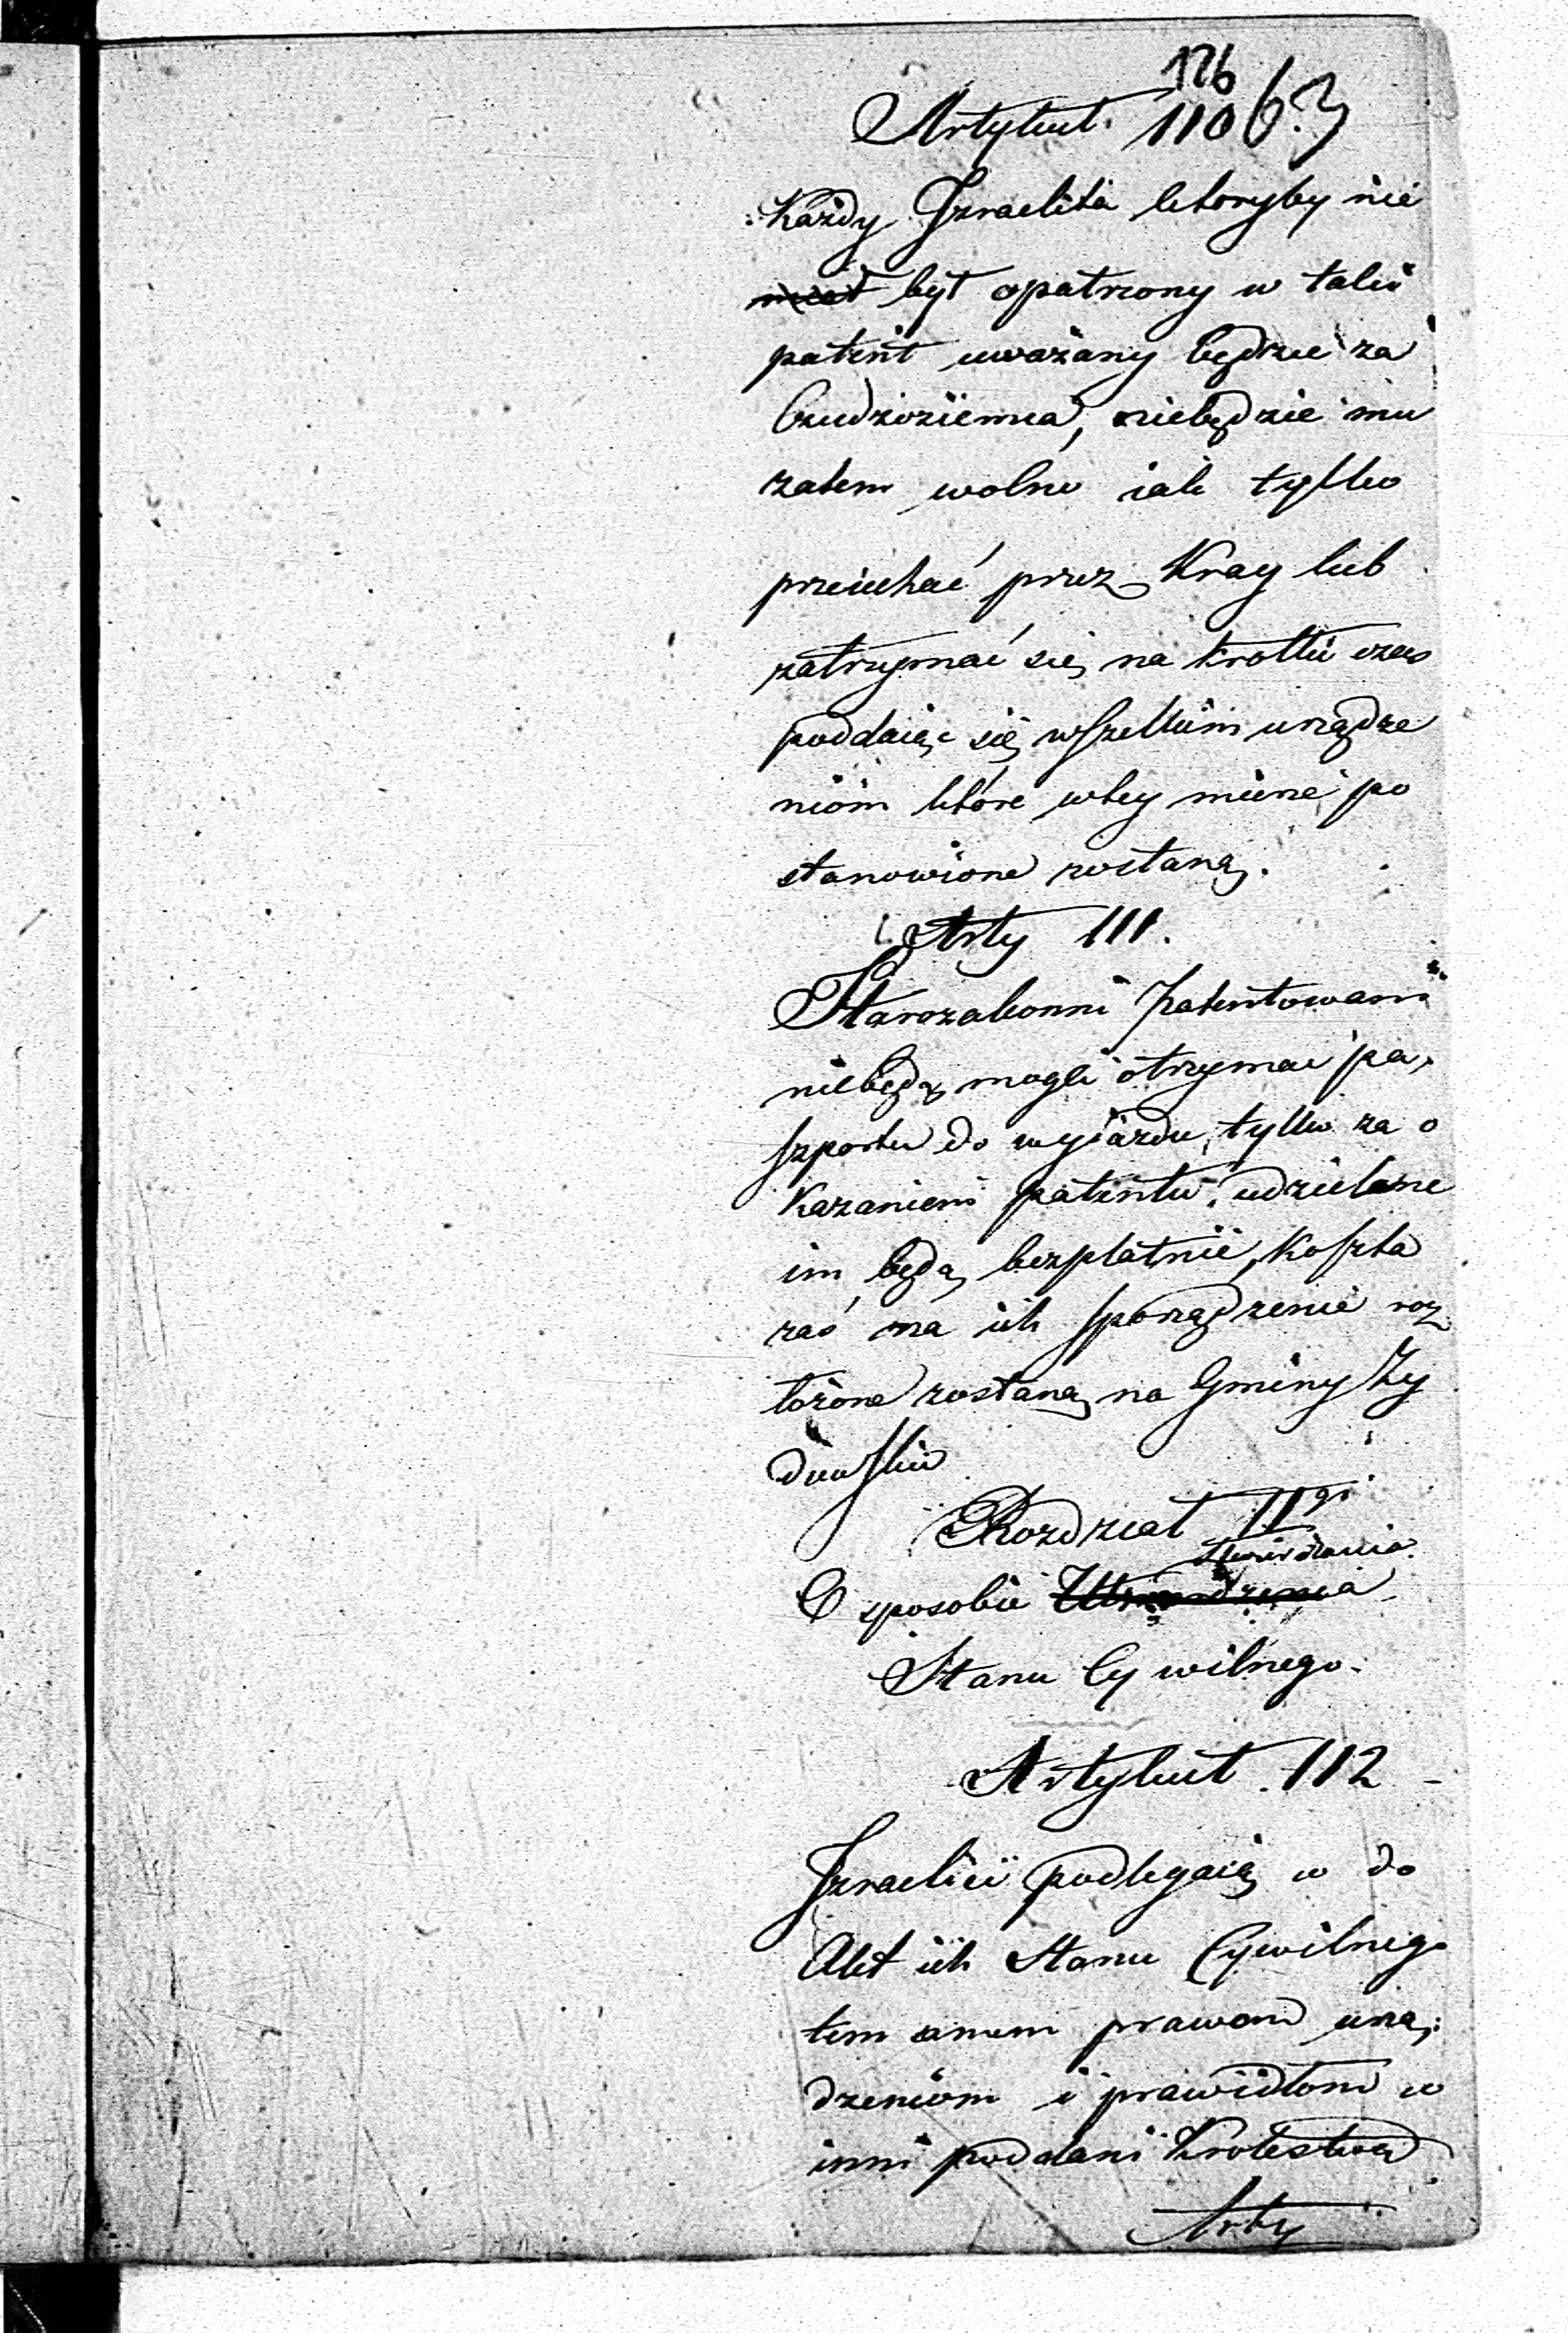 126
Artykuł. 110 63
Każdy Izraelita ktoryby nie
miał był opatrzony w taki
patent uważany będzie za
Cudzoziemca, niebędzie mu
zatem wolno iak tylko
przeiechać przez Kray lub
zatrzymać się na krotki czas
poddaiąc się wszelkim urządze
niom które wtey mierze po
stanowione zostaną.
Arty 111.
Starozakonni Patentowani
niebędą mogli otrzymać pa,
szportu do wyiazdu, tylko za o
kazaniem patentu. udzielone
im będą bezpłatnie, koszta
zaś na ich sporządzenie roz
łożone zostaną na Gminy Ży
dowskie
Rozdział II gi
stwierdzenia
O sposobie
Stanu Cywilnego.
Artykuł. 112
Izraelici podlegaią w do
Akt ich Stanu Cywilnego
tem samem prawom urzą:
dzeniom i prawidłom co
inni poddani Krolestwa
Arty